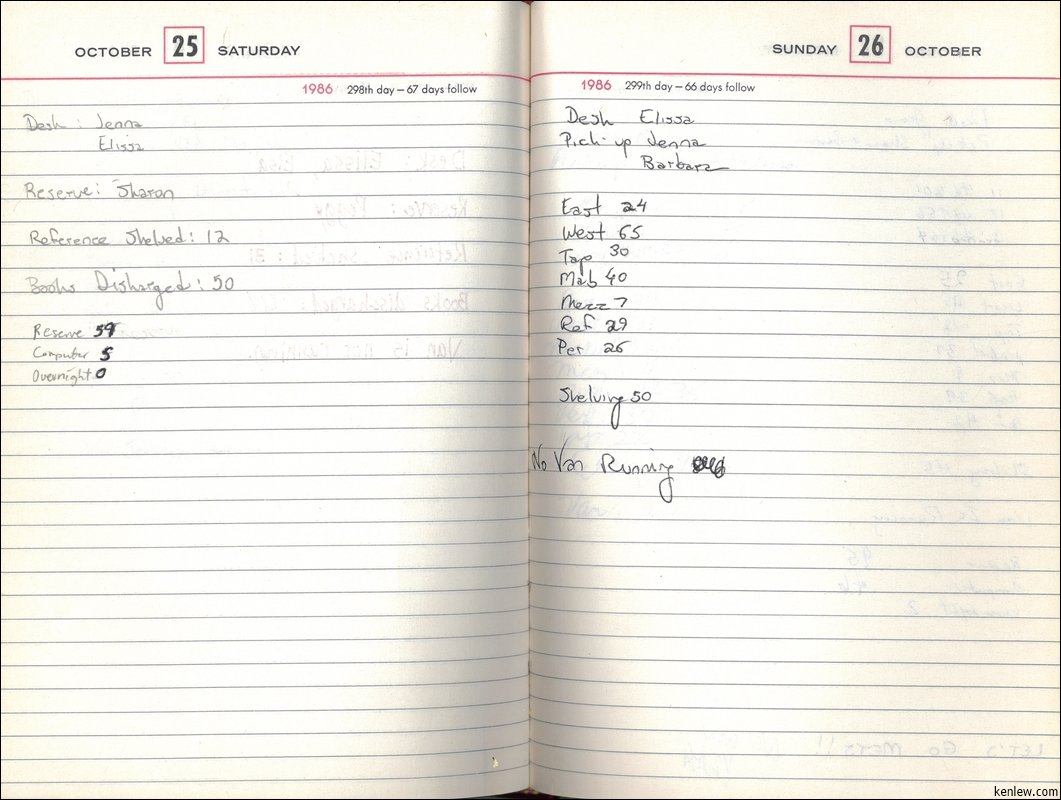 OCTOBER 25 SATURDAY
1986 298th day — 67 days follow
Desk : Jenna
Elissa
Reserve: Sharon
Reference Shelved: 12
Books Disharged: 50
Reserve 59
Computer 5
Overnight 0
SUNDAY 26 OCTOBER
1986 299th day — 66 days follow
Desk Elissa
Pick-up Jenna
Barbara
East 24
West 65
Tap 30
Mab 40
Mezz 7
Ref 29
Per 26
Shelving 50
No Van Running
LET'S GO METS!!
kenlew.com